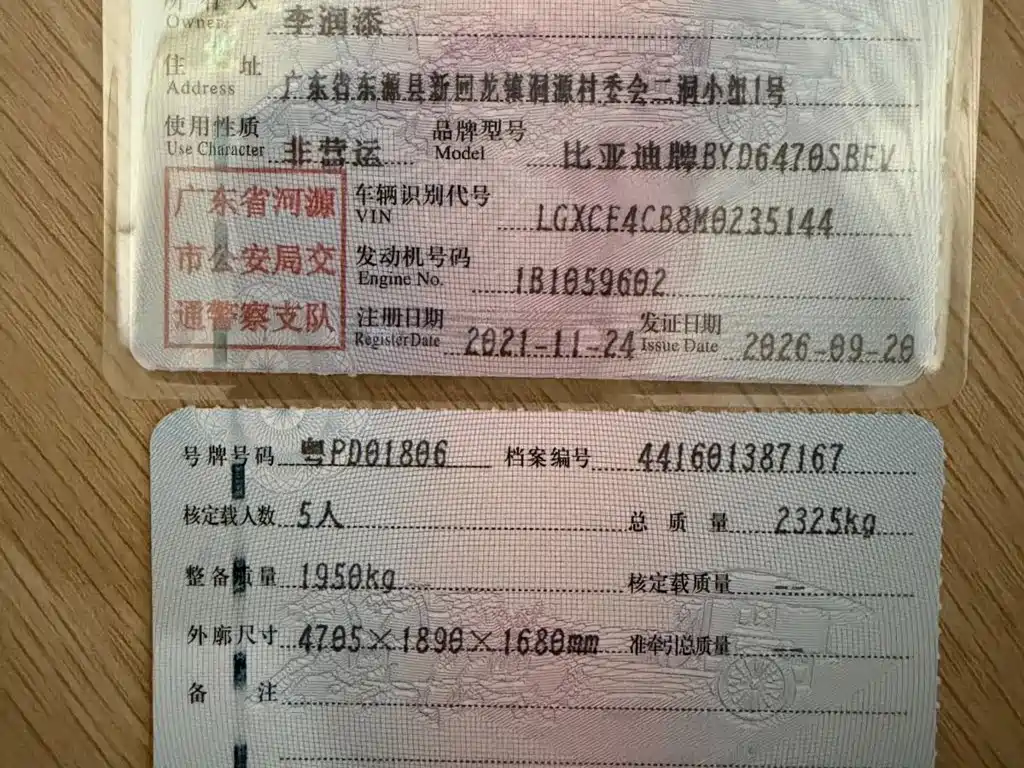 所有人 李润添
Owner
住址 广东省东源县新回龙镇洞源村委会二洞小组1号
Address
使用性质 非营运 品牌型号 比亚迪牌BYD6470SBEV
Use Character Model
广东省河源 车辆识别代号 LGXCE4CB8M0235144
VIN
市公安局交 发动机号码 1B1059602
Engine No.
通警察支队 注册日期 2021-11-24 发证日期 2026-09-20
Register Date Issue Date
号牌号码 粤PD01806 档案编号 441601387167
核定载人数 5人 总质量 2325kg
整备质量 1950kg 核定载质量 --
外廓尺寸 4705×1890×1680mm 准牵引总质量 --
备注